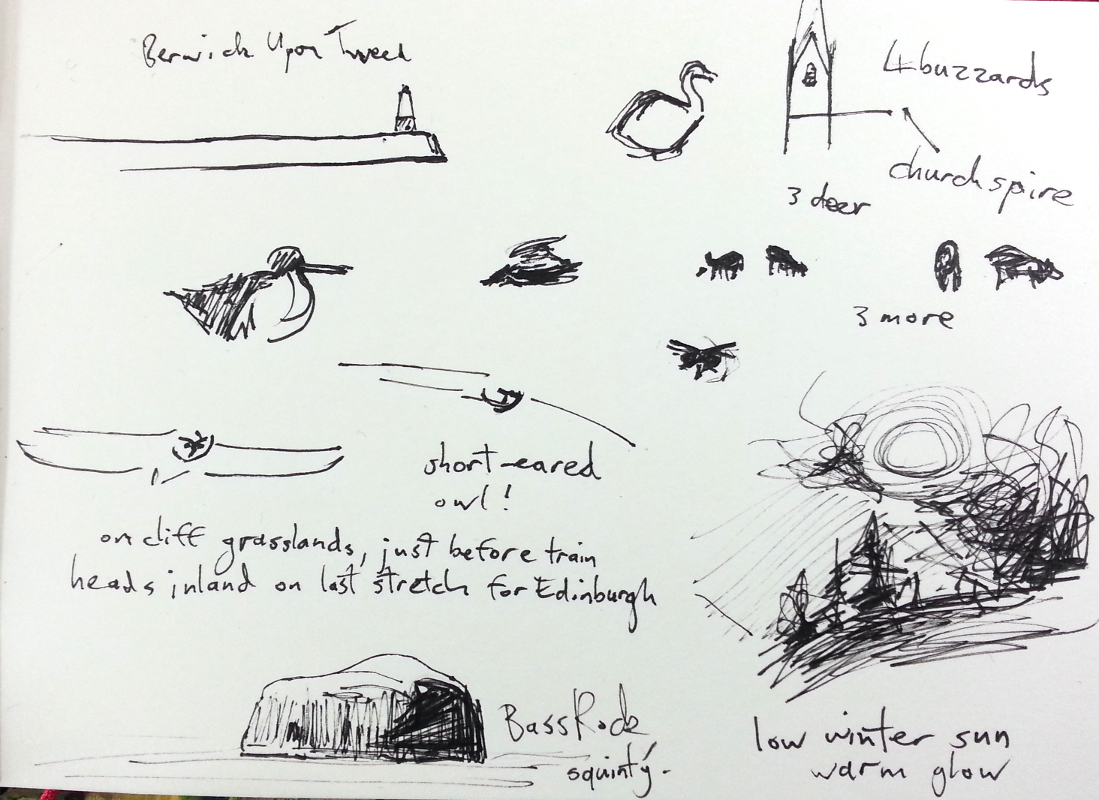 Berwick Upon Tweed
4 buzzards
church spire
3 deer
3 more
short-eared
owl!
on cliff grasslands, just before train
heads inland on last stretch for Edinburgh
Bass Rock
squinty.
low winter sun
warm glow